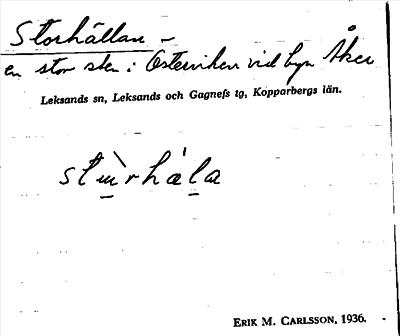 Storhällan –
en stor sten i Österviken vid byn Åker
Leksands sn, Leksands och Gagnefs tg, Kopparbergs län.
stù̠rhǽl̠a
ERIK M. CARLSSON, 1936.